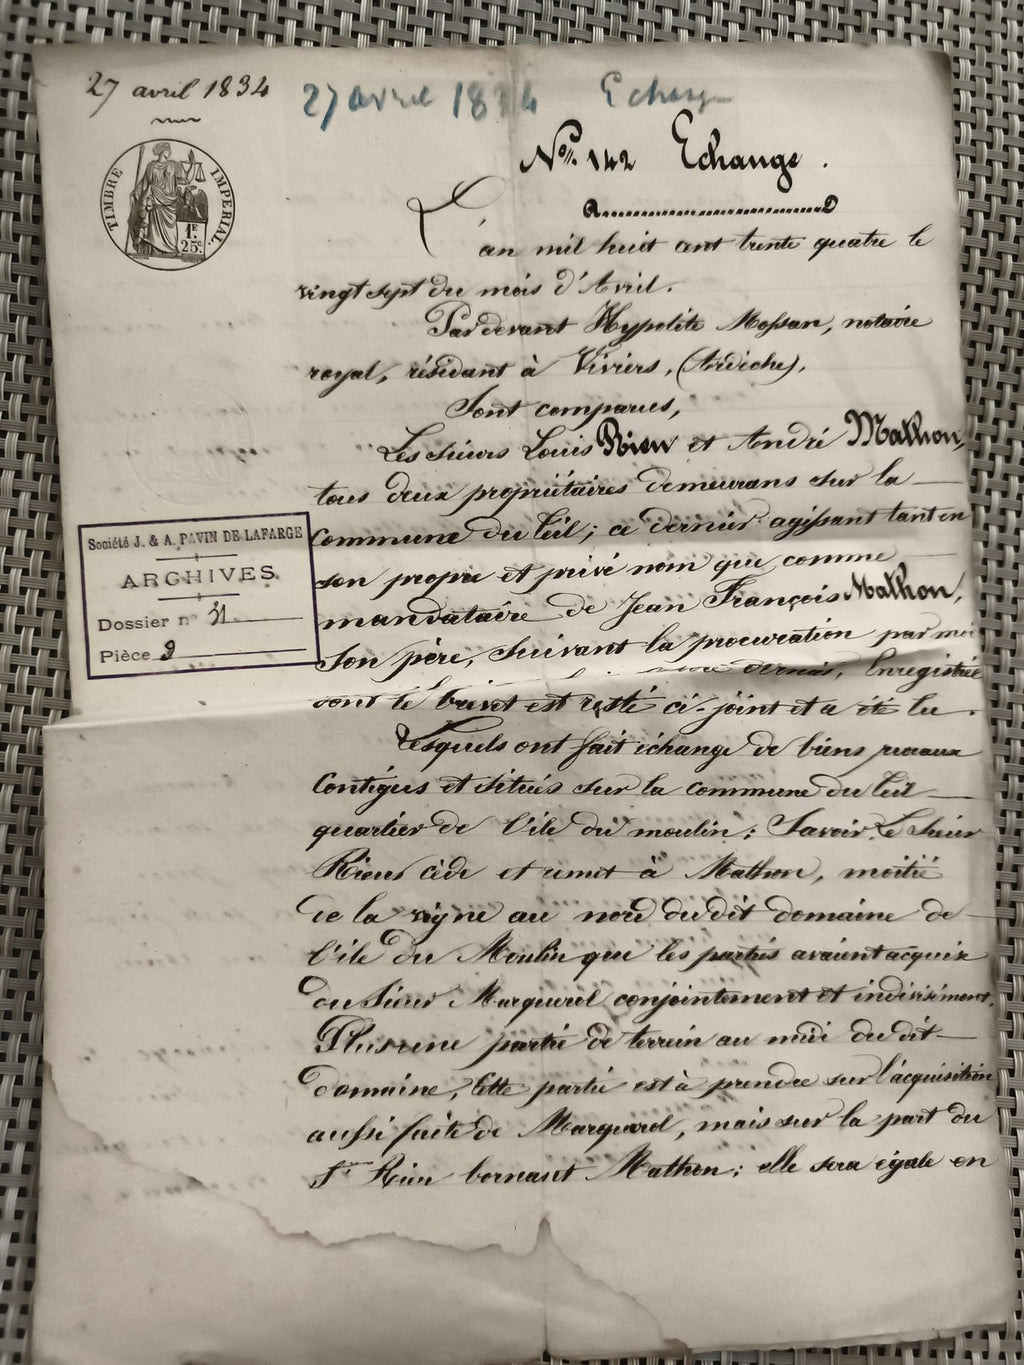 27 avril 1834
27 avril 1834 Echange
TIMBRE IMPERIAL.
1F. 25c.
No. 142 Echange.
L'an mil huit cent trente quatre le
vingt sept du mois d'Avril.
Pardevant Hypolite Mossan, notaire
royal, résidant à Viviers, (Ardèche),
Sont comparus,
Les sieurs Louis Rieu et André Mathon,
tous deux propriétaires demeurans sur la
Commune du Teil; ce dernier agissant tant en
son propre et privé nom que comme
mandataire de Jean François Mathon,
son père, suivant la procuration par moi
dernier, Enregistrée
dont le brevet est resté ci-joint et a été lu.
Lesquels ont fait échange de biens ruraux
Contigus et situés sur la commune du Teil
quartier de l'ile du moulin; Savoir. Le Sieur
Rieu cède et remet à Mathon, moitié
de la vigne au nord du dit domaine de
l'ile du Moulin que les parties avaient acquise
du Sieur Marquerol conjointement et indivisiment.
Plus une partie de terrein au midi du dit
domaine, Cette partie est à prendre sur l'acquisition
aussi faite de Marquerol, mais sur la part du
Sr. Rieu bornant Mathon; elle sera égale en
Société J. & A. PAVIN DE LAFARGE
ARCHIVES.
Dossier n° 31
Pièce 9